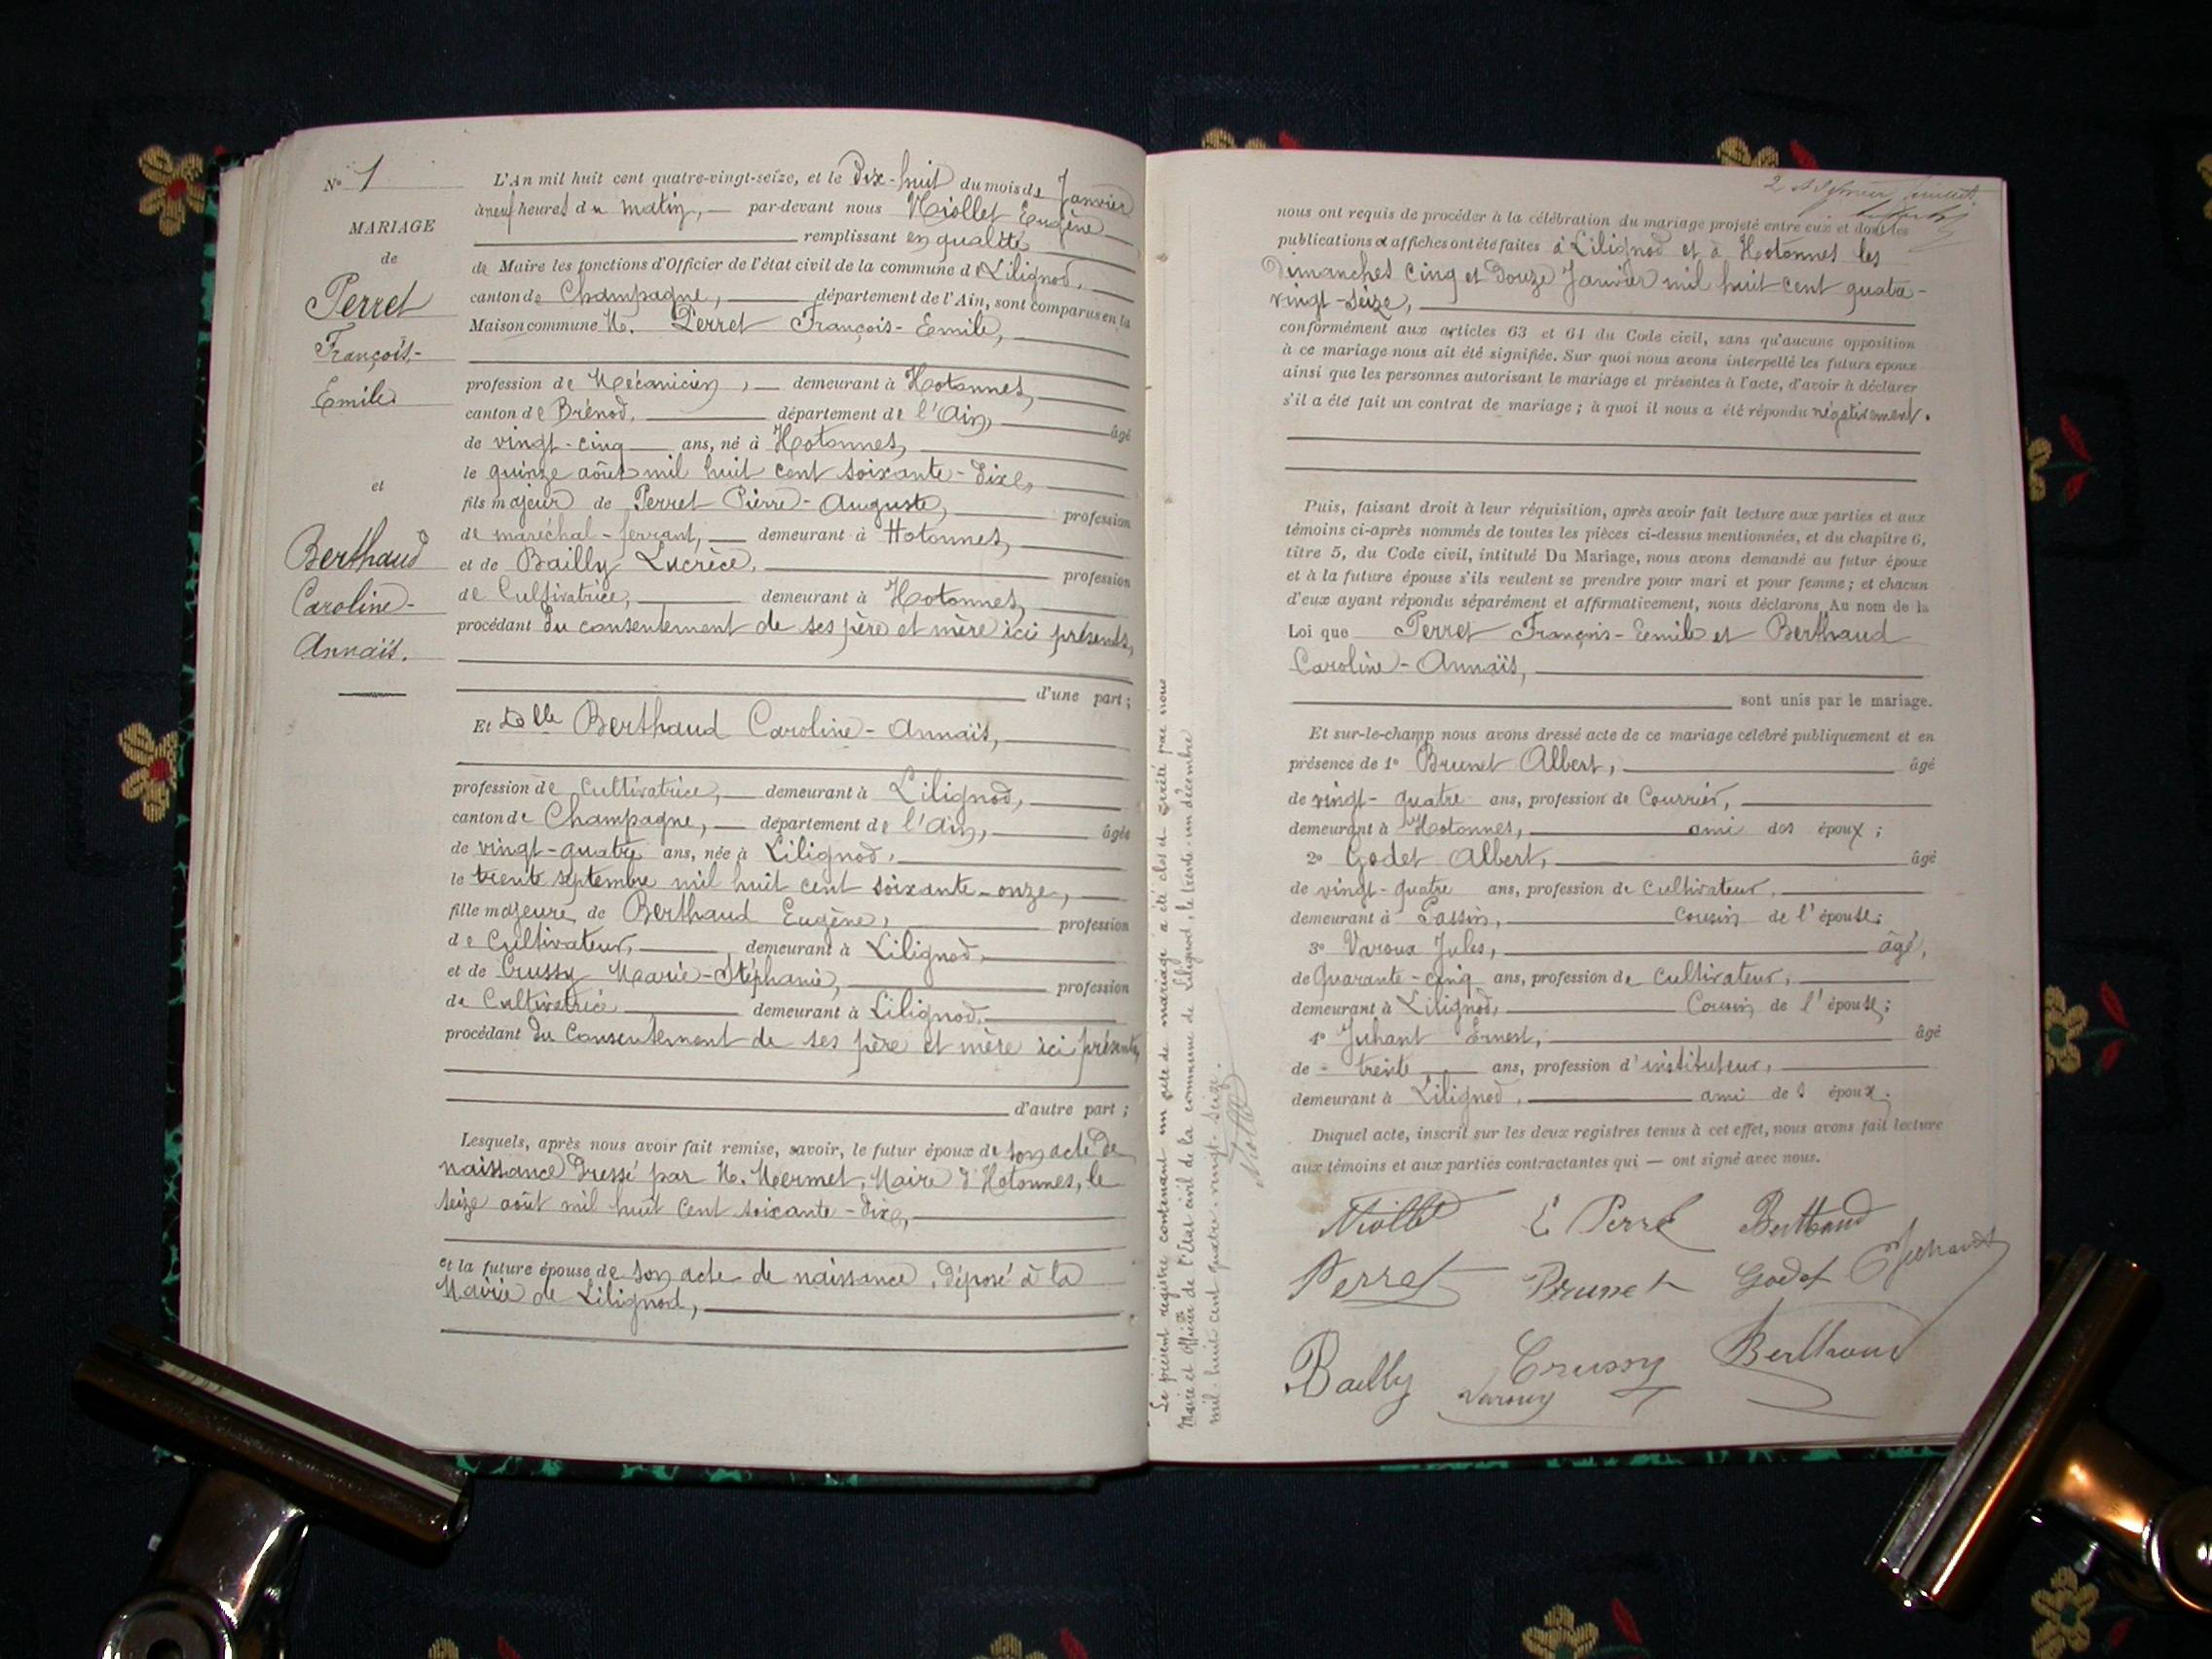 N° 1
MARIAGE
de
Perret
François-
Emile
et
Berthaud
Caroline-
Annaïs.
L'An mil huit cent quatre-vingt-seize, et le Dix-huit du mois de Janvier
à neuf heures du matin, par-devant nous Niollet Eugène
remplissant en qualité
de Maire les fonctions d'Officier de l'état civil de la commune de Lilignod,
canton de Champagne, département de l'Ain, sont comparus en la
Maison commune M. Perret François-Emile,
profession de Mécanicien, demeurant à Hotonnes,
canton de Brénod, département de l'Ain, âgé
de vingt-cinq ans, né à Hotonnes,
le quinze août mil huit cent soixante-dix,
fils majeur de Perret Pierre-Auguste, profession
de maréchal-ferrant, demeurant à Hotonnes,
et de Bailly Lucrèce, profession
de Cultivatrice, demeurant à Hotonnes,
procédant du consentement de ses père et mère ici présents,
d'une part;
Et Delle Berthaud Caroline-Annaïs,
profession de Cultivatrice, demeurant à Lilignod,
canton de Champagne, département de l'Ain, âgée
de vingt-quatre ans, née à Lilignod,
le trente septembre mil huit cent soixante-onze,
fille majeure de Berthaud Eugène, profession
de Cultivateur, demeurant à Lilignod,
et de Crussy Marie-Stéphanie, profession
de Cultivatrice demeurant à Lilignod,
procédant du Consentement de ses père et mère ici présents,
d'autre part;
Lesquels, après nous avoir fait remise, savoir, le futur époux de son acte de
naissance Dressé par M. Mermet, Maire d'Hotonnes, le
seize août mil huit cent soixante-dix,
et la future épouse de son acte de naissance, déposé à la
Mairie de Lilignod,
Le présent registre contenant un acte de mariage a été clos et arrêté par nous
Maire et officier de l'Etat civil de la commune de Lilignod, le trente-un décembre
mil huit cent quatre-vingt-seize.
Niollet
nous ont requis de procéder à la célébration du mariage projeté entre eux et dont les
publications et affiches ont été faites à Lilignod et à Hotonnes les
Dimanches Cinq et Douze Janvier mil huit cent quatre-
vingt-seize,
conformément aux articles 63 et 64 du Code civil, sans qu'aucune opposition
à ce mariage nous ait été signifiée. Sur quoi nous avons interpellé les futurs époux
ainsi que les personnes autorisant le mariage et présentes à l'acte, d'avoir à déclarer
s'il a été fait un contrat de mariage; à quoi il nous a été répondu négativement.
Puis, faisant droit à leur réquisition, après avoir fait lecture aux parties et aux
témoins ci-après nommés de toutes les pièces ci-dessus mentionnées, et du chapitre 6,
titre 5, du Code civil, intitulé Du Mariage, nous avons demandé au futur époux
et à la future épouse s'ils veulent se prendre pour mari et pour femme; et chacun
d'eux ayant répondu séparément et affirmativement, nous déclarons Au nom de la
Loi que Perret François-Emile et Berthaud
Caroline-Annaïs,
sont unis par le mariage.
Et sur-le-champ nous avons dressé acte de ce mariage célébré publiquement et en
présence de 1° Brunet Albert, âgé
de vingt-quatre ans, profession de Courrier,
demeurant à Hotonnes, ami des époux;
2° Godet Albert, âgé
de vingt-quatre ans, profession de cultivateur,
demeurant à Passin, Cousin de l'épouse;
3° Varoux Jules, âgé,
de Quarante-cinq ans, profession de cultivateur,
demeurant à Lilignod, Cousin de l'épouse;
4° Juhant Ernest, âgé
de trente ans, profession d'instituteur,
demeurant à Lilignod, ami des époux.
Duquel acte, inscrit sur les deux registres tenus à cet effet, nous avons fait lecture
aux témoins et aux parties contractantes qui — ont signé avec nous.
Niollet E Perret Berthaud
Perret Brunet Godet Juhant
Bailly Crussy Berthaud
Varoux